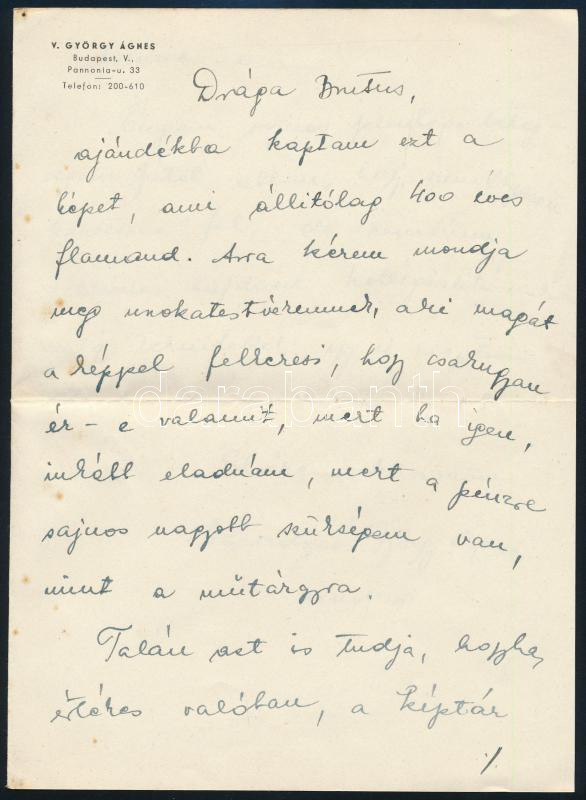 V. GYÖRGY ÁGNES
Budapest, V.,
Pannonia-u. 33
Telefon: 200-610
Drága Brutus,
ajándékba kaptam ezt a
képet, ami állitólag 400 éves
flamand. Arra kérem mondja
meg unokatestvéremnek, aki magát
a képpel felkeresi, hogy csakugyan
ér-e valamit, mert ha igen,
inkább eladnám, mert a pénzre
sajnos nagyobb szükségem van,
mint a műtárgyra.
Talán azt is tudja, hogyha
értékes valóban, a Képtár
./.
darabanth